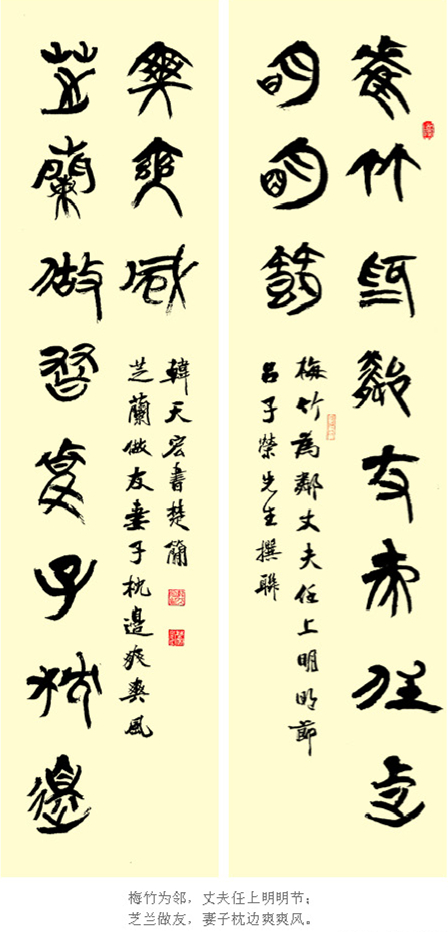 梅竹為鄰丈夫任上
明明節
梅竹為鄰丈夫任上明明節
呂子榮先生撰聯
芝蘭做友妻子枕邊
爽爽風
芝蘭做友妻子枕邊爽爽風
韓天宏書楚簡
梅竹为邻，丈夫任上明明节；
芝兰做友，妻子枕边爽爽风。